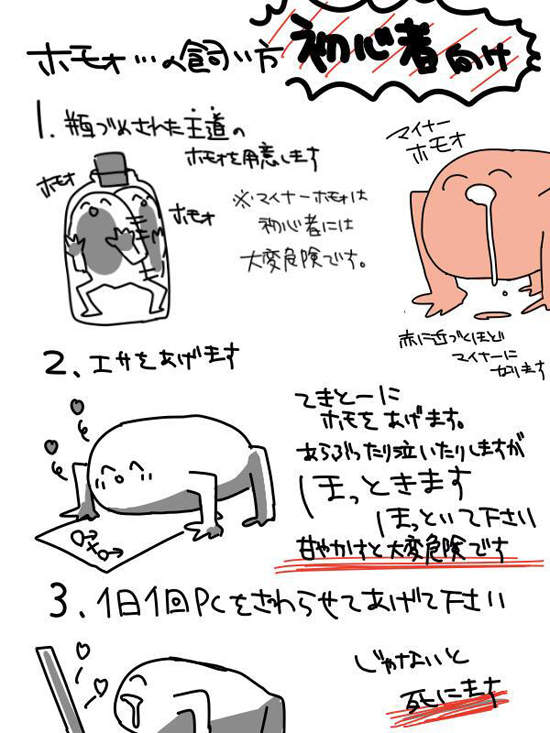 ホモォ…の飼い方
初心者向け
1.瓶づめされた王道の
ホモォを用意します
ホモォ
ホモォ
※マイナーホモォは
初心者には
大変危険です。
マイナー
ホモォ
赤に近づくほど
マイナーに
なります
2、エサをあげます
てきとーに
ホモをあげます。
あらぶったり泣いたりしますが
ほっときます
ほっといて下さい
甘やかすと大変危険です
3、1日1回PCをさわらせてあげて下さい
じゃないと
死にます